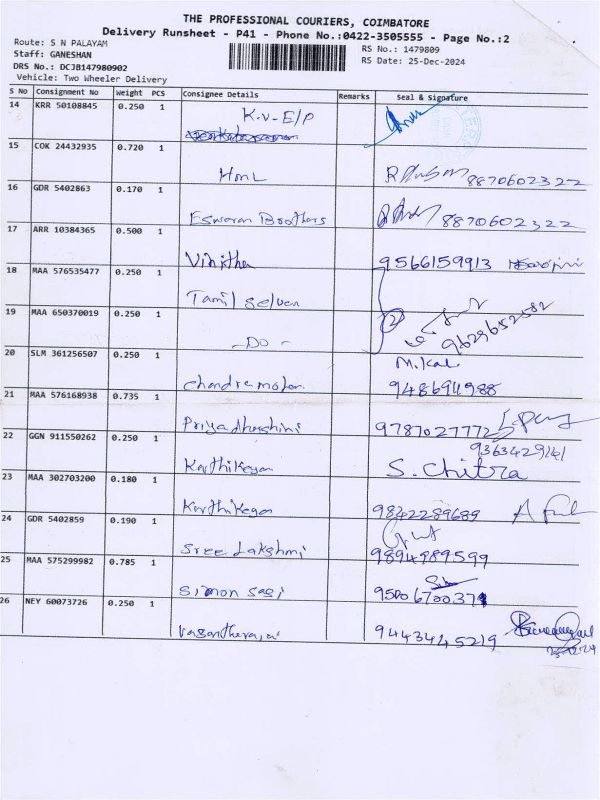 THE PROFESSIONAL COURIERS, COIMBATORE
Delivery Runsheet - P41 - Phone No.:0422-3505555 - Page No.:2
Route: S N PALAYAM
RS No.: 1479809
Staff: GANESHAN
RS Date: 25-Dec-2024
DRS No.: DCJB147980902
Vehicle: Two Wheeler Delivery
S No Consignment No Weight PCS Consignee Details Remarks Seal & Signature
14 KRR 50108845 0.250 1 K.V-E/P
15 COK 24432935 0.720 1 HML 8870602322
16 GDR 5402863 0.170 1 Eswaran Brothers 8870602322
17 ARR 10384365 0.500 1 Vinitha 9566159913
18 MAA 576535477 0.250 1 Tamil Selvan
19 MAA 650370019 0.250 1 -DO- 9629652582
20 SLM 361256507 0.250 1 Chandramohan M.Kal 9486911988
21 MAA 576168938 0.735 1 Priyadharshini 9787027772
22 GGN 911550262 0.250 1 Karthikeyan 9363429141 S.Chitra
23 MAA 302703200 0.180 1 Karthikeyan 9842289689
24 GDR 5402859 0.190 1 Sree Lakshmi 9894989599
25 MAA 575299982 0.785 1 Simon Sasi 9500670037
26 NEY 60073726 0.250 1 Vasantharaja 9443445219
25-12-24